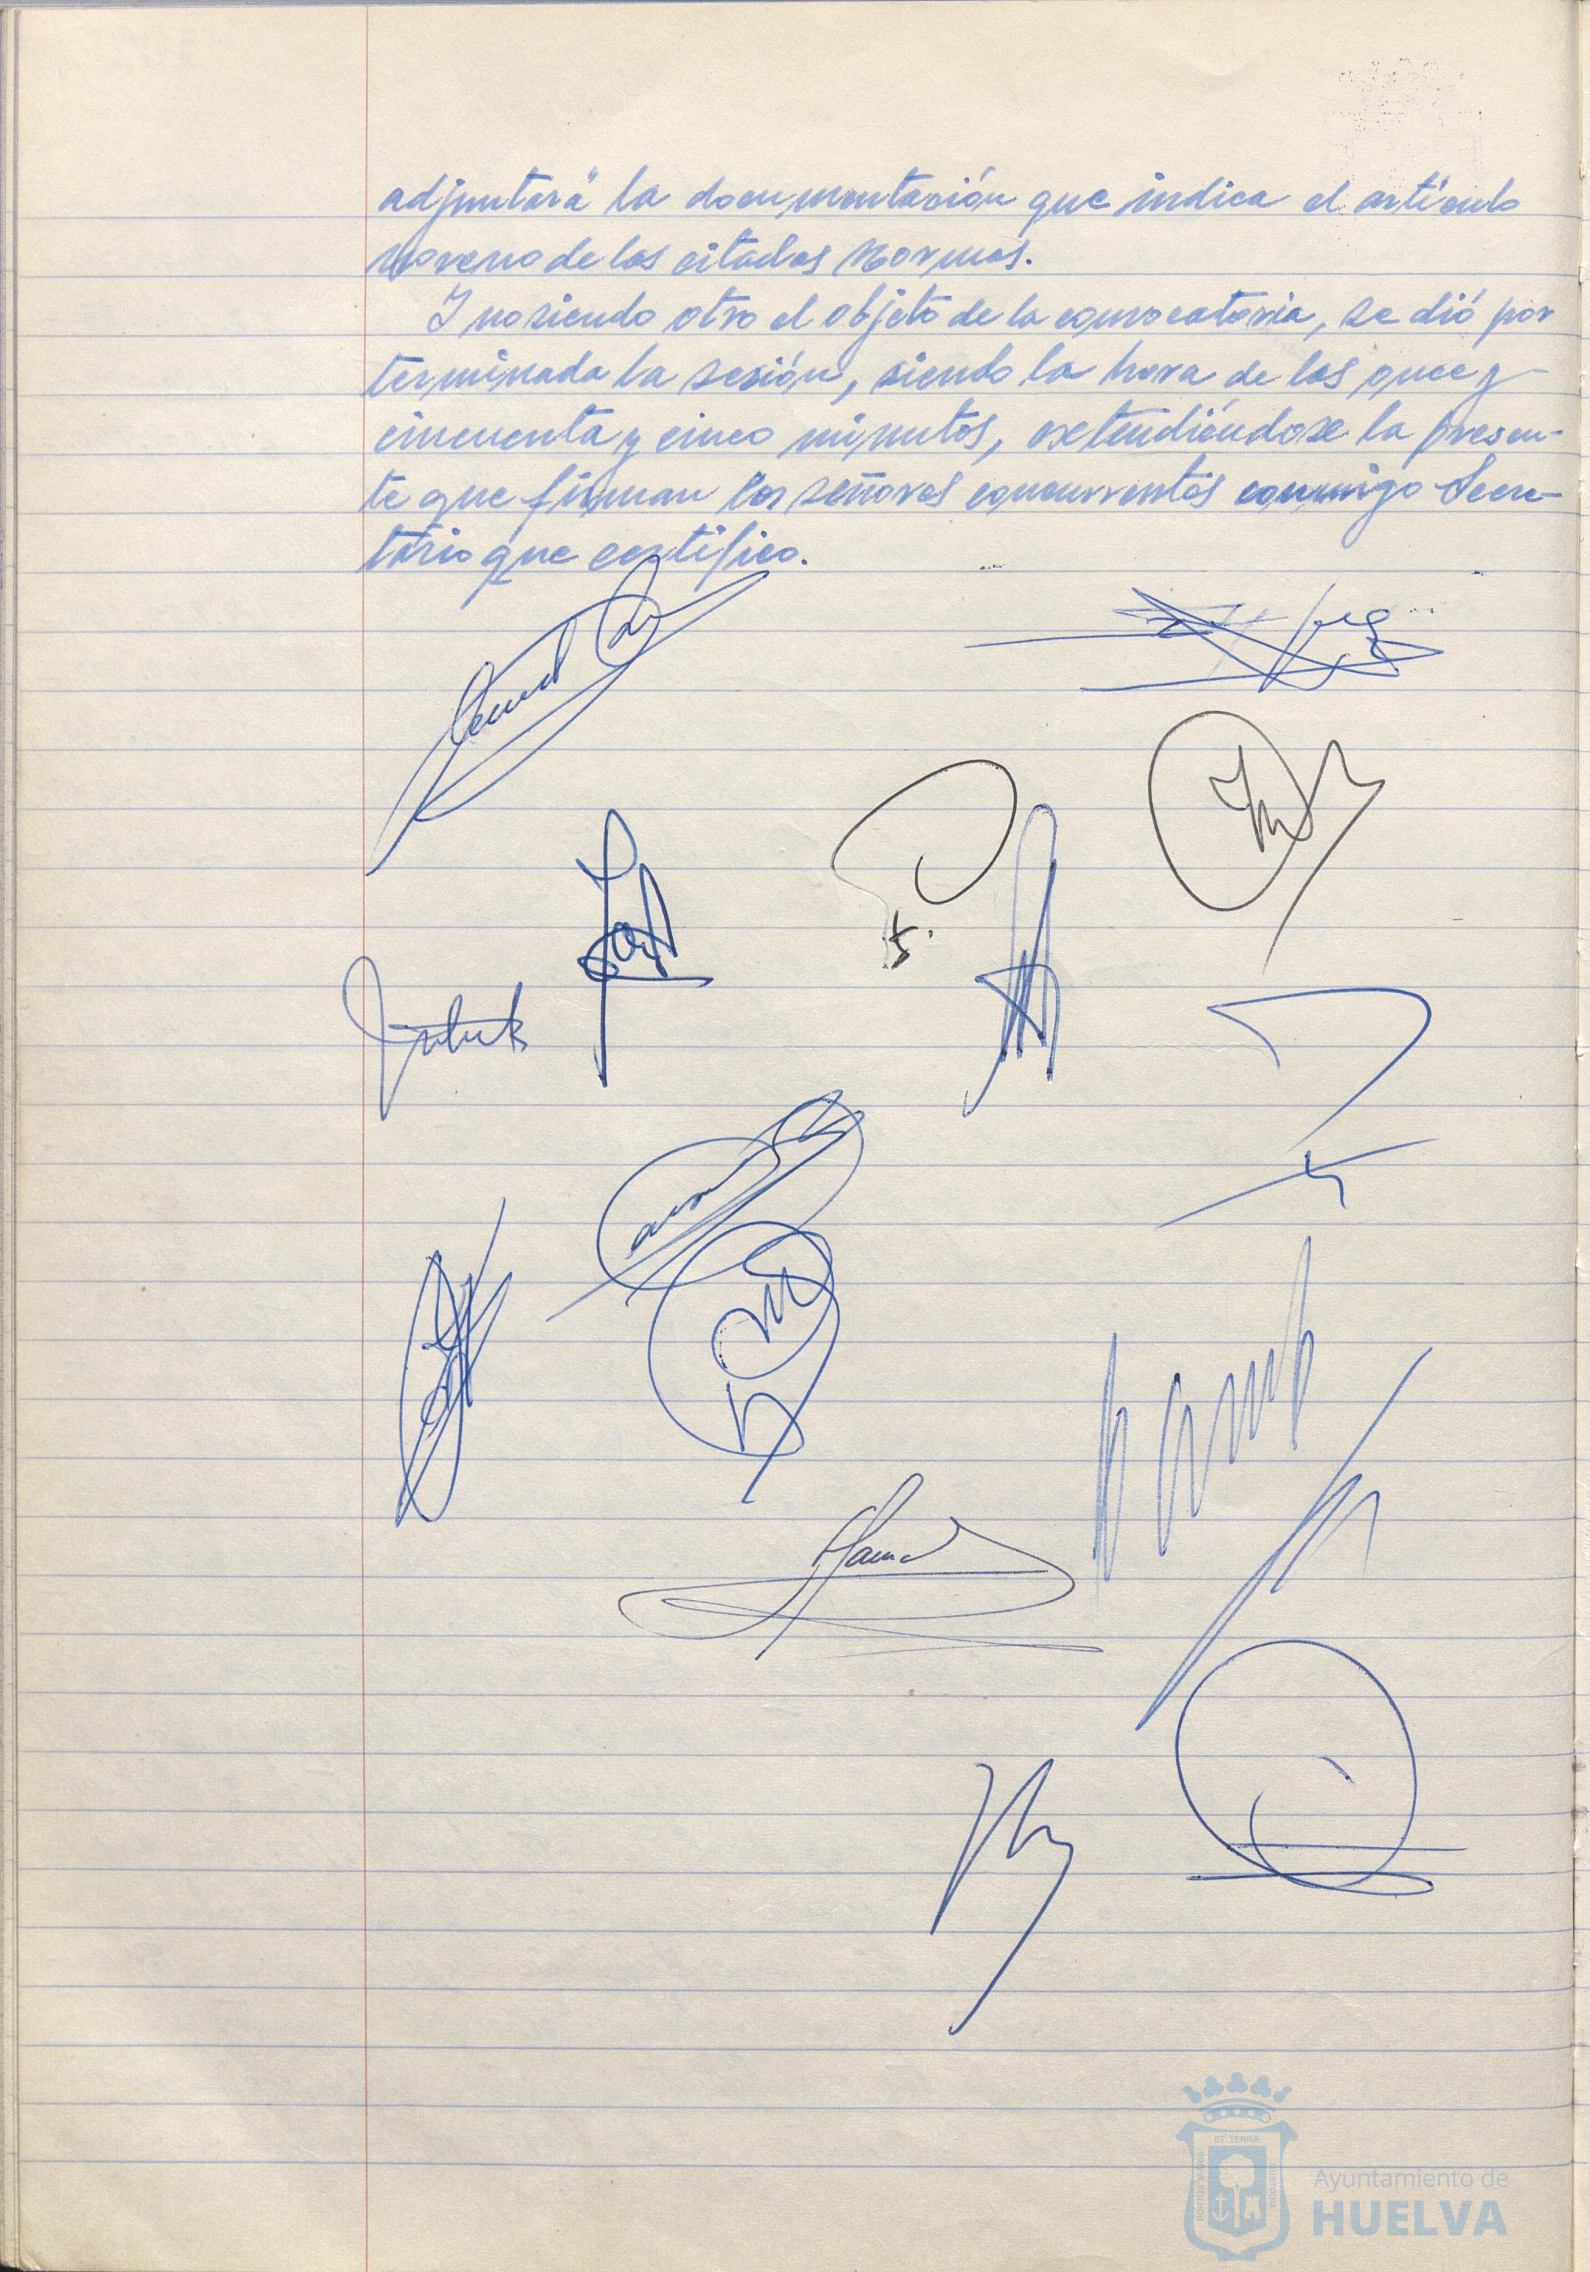 adjuntará la documentación que indica el artículo
noveno de las citadas Normas.
Y no siendo otro el objeto de la convocatoria, se dió por
terminada la sesión, siendo la hora de las once y
cincuenta y cinco minutos, extendiéndose la presen-
te que firman los señores concurrentes conmigo Secre-
tario que certifico.
ET TERRÆ
PORTUS MARIS
CUSTODIA
Ayuntamiento de
HUELVA